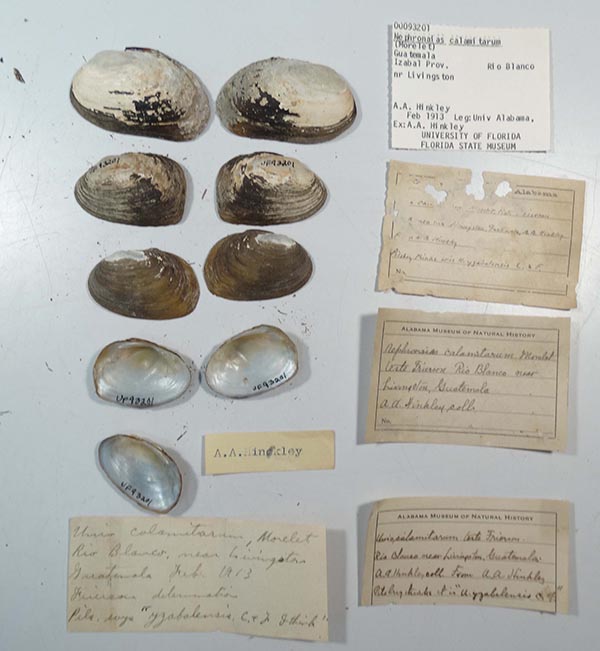 00093201
Nephronaias calamitarum
(Morelet)
Guatemala
Izabal Prov. Rio Blanco
nr Livingston
A.A. Hinkley
Feb 1913 Leg:Univ Alabama,
Ex:A.A. Hinkley
UNIVERSITY OF FLORIDA
FLORIDA STATE MUSEUM
UF93201
UF93201
UF93201
UF93201
UF93201
A.A.Hinckley
Alabama
No.
ALABAMA MUSEUM OF NATURAL HISTORY
Nephronaias calamitarum Morelet
teste Frierson Rio Blanco near
Livingston, Guatemala
A.A. Hinkley, coll.
No.
ALABAMA MUSEUM OF NATURAL HISTORY
Unio calamitarum teste Frierson.
Rio Blanco near Livingston, Guatemala
A.A Hinkley, coll. From A.A. Hinkley
Pilsbry thinks it is "U. yzabalensis C. & F."
Unio calamitarum, Morelet
Rio Blanco, near Livingston
Guatemala Feb. 1913
Frierson determination
Pils. says "yzabalensis, C. & F. I think"